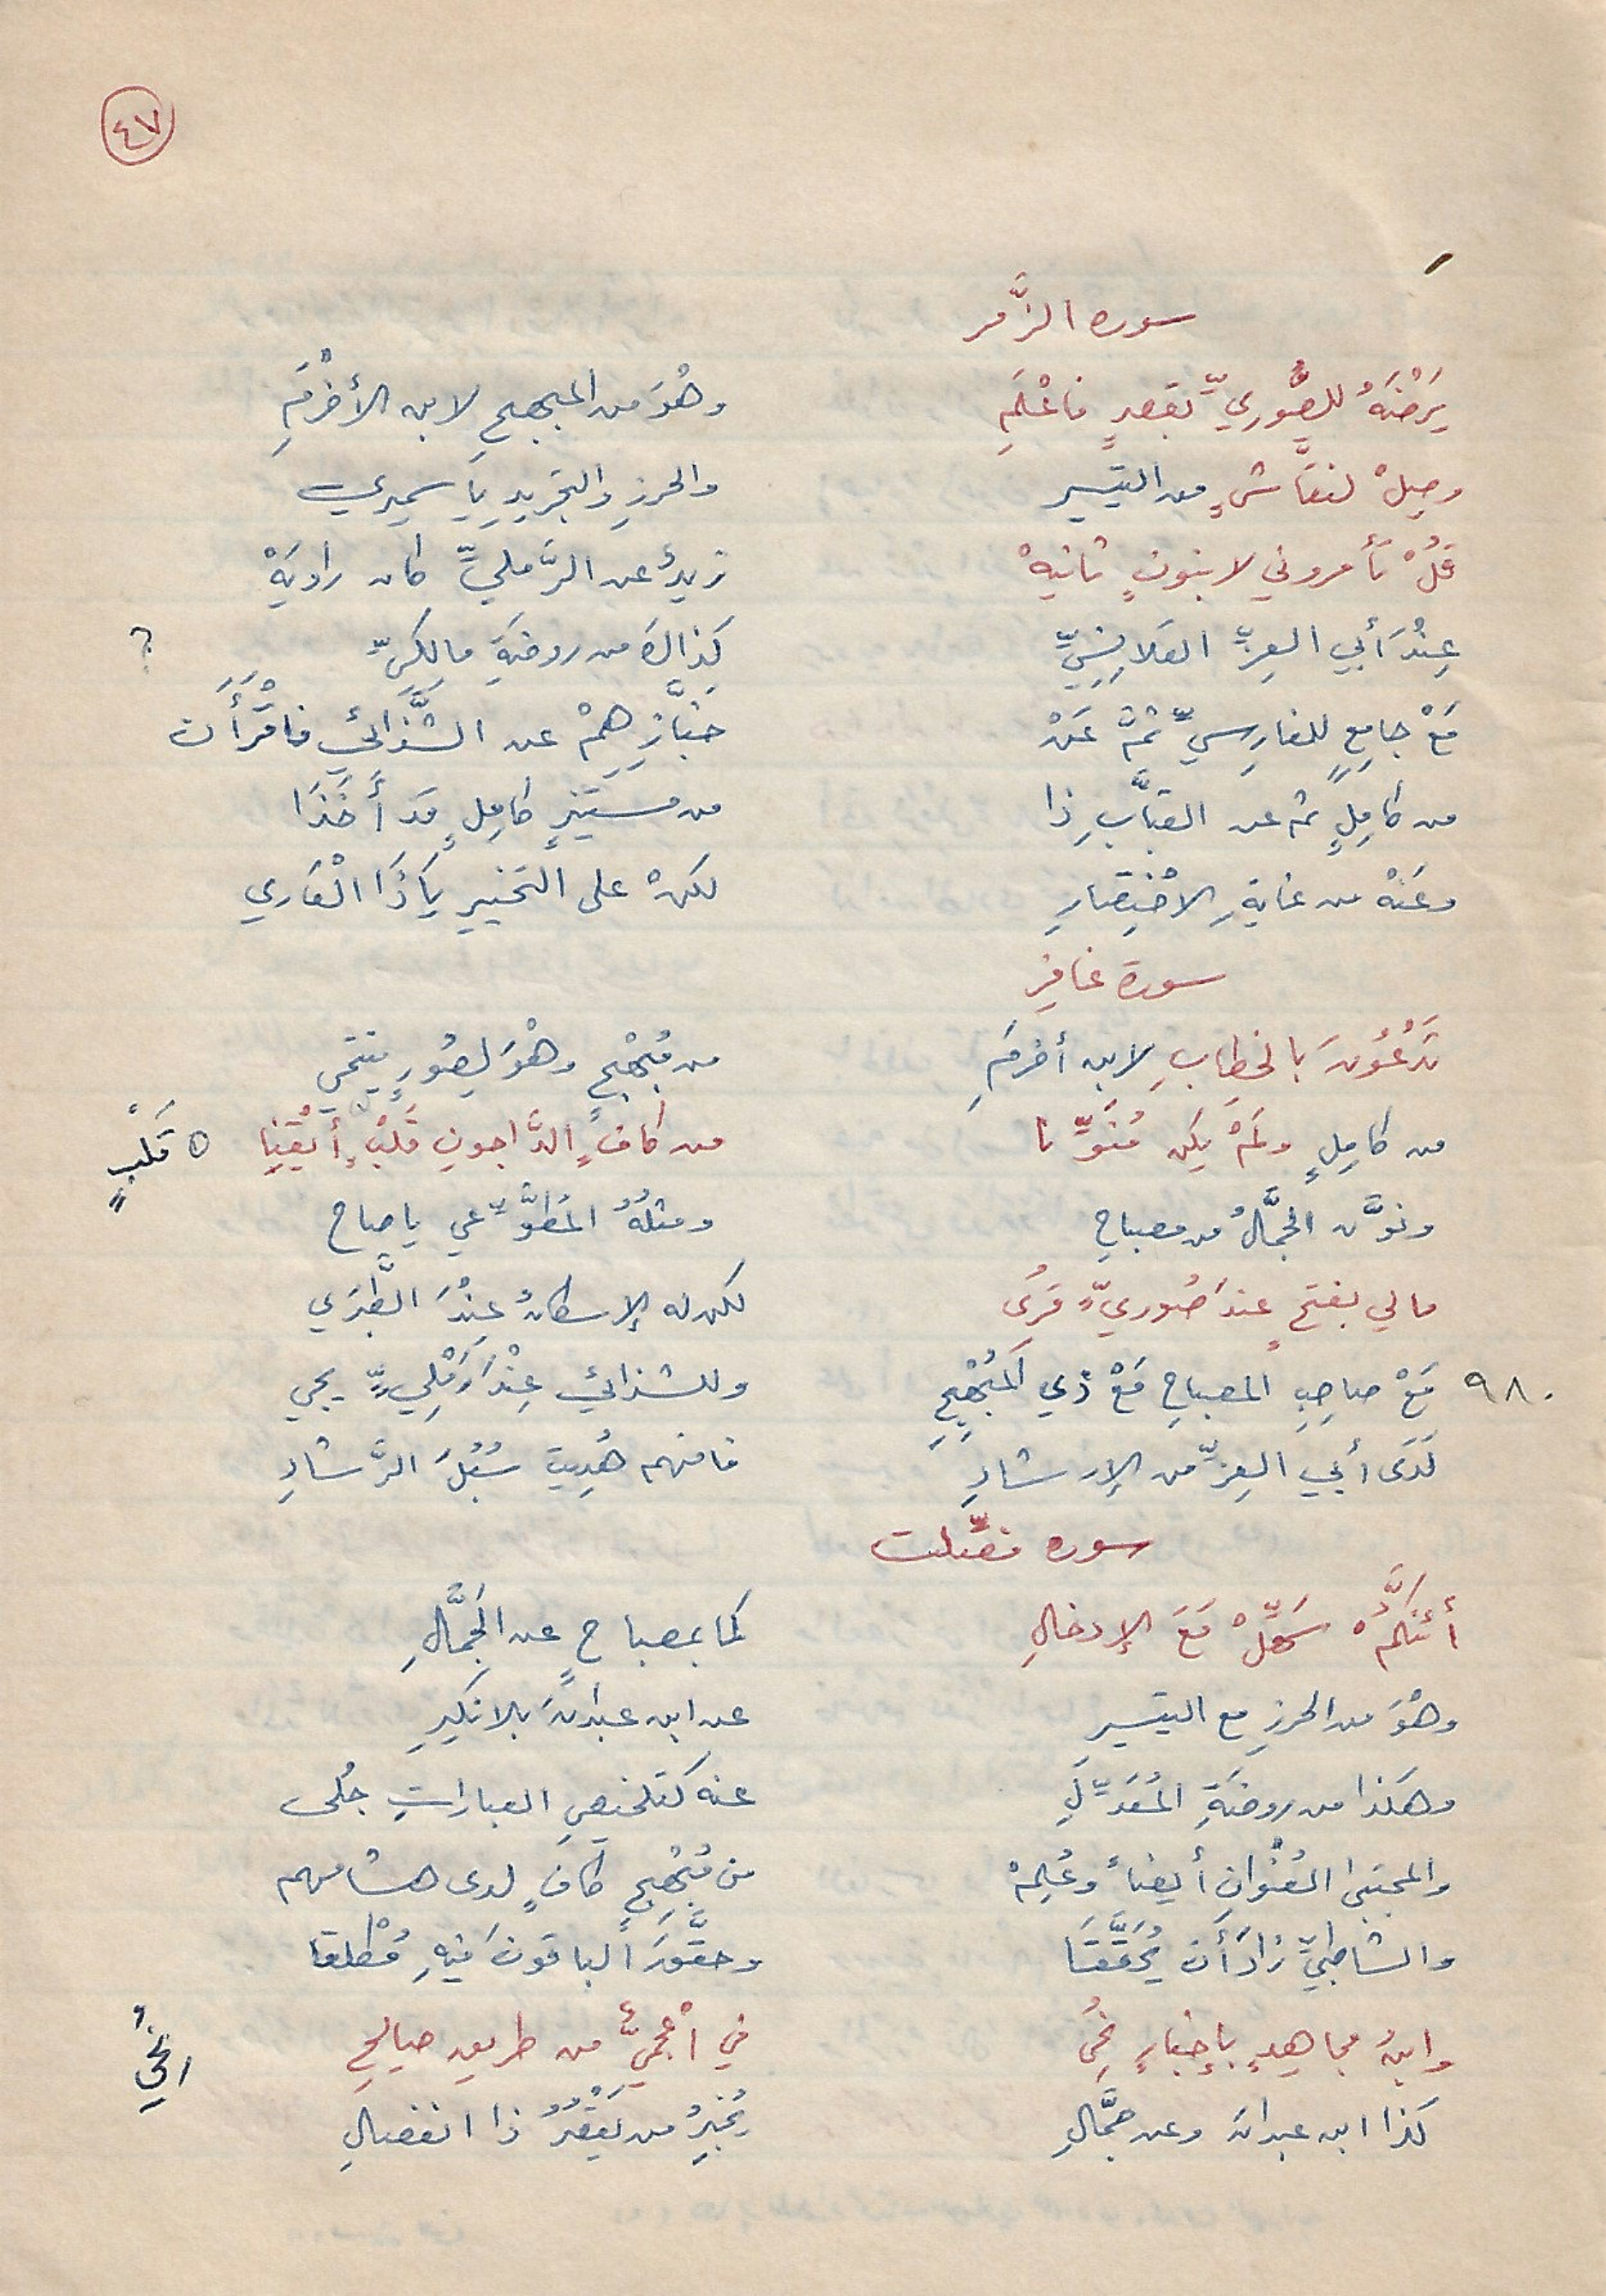 ٤٧
سورة الزُّمر
يَرْضَهُ للصُّوريِّ بقصرٍ فاعْلَمِ وهْوَ من المبهجِ لابن الأخْرَمِ
وصِلْ لنقَّاشٍ من التيسيرِ والحرزِ والتجريدِ يا سميري
قُلْ تأمروني لا بنونٍ ثانيهْ زيدٌ عن الرَّمليِّ كان راويَهْ
عِنْدَ أبي العِزِّ القلانِسِيِّ كذاكَ من روضةِ مالِكيِّ ؟
مَعْ جامِعٍ للفارِسيِّ ثمَّ عَنْ خبَّازِهِمْ عن الشَّذائي فاقْرَأَن
من كامِلٍ ثم عن القبَّابِ ذا من مستنيرٍ كامِلٍ قد أَخَذَا
وعَنْهُ من غايةِ الاخْتِصارِ لكنْ على التخييرِ يَا ذَا الْقَاري
سورة غافرِ
تَدْعُونَ بالخطابِ لابن أخرمِ من مُبْهِجٍ وهْوَ لِصُورٍ ينتمي
من كامِلٍ ولَمْ يكن مُنَوِّنا من كافٍ الدَّاجونِ قَلْبٍ أيْقِنِا ٥ قَلْبٍ
ونوَّن الجمَّالُ من مصباحِ ومثلُهُ المُطوِّعي يا صاح
مالي بفتحٍ عندَ صُوريٍّ قُرِى لكن له الإسكانُ عِنْدَ الطَّبَرَي
٩٨٠ مَعْ صاحِبِ المصباحِ مَعْ ذي المُبْهِجِ وللشذائي عِنْدَ رَمْلِيٍّ يجي
لَدَى أبي العِزِّ من الإرشادِ فافهم هُدِيتَ سُبُلَ الرَّشادِ
سورة فصِّلت
أئنكُمْ سَهِّلْ مَعَ الإدخالِ كما بمصباحٍ عن الجَمَّالِ
وهْوَ من الحرزِ مع التيسيرِ عن ابن عبدانَ بلا نكيرِ
وهكذا من روضةِ المُعَدِّلِ عنه كتلخيصِ العباراتِ جُلى
والمجتبى العُنْوانِ أيضاً وعُلِمْ من مُبْهِجٍ كافٍ لدى هشامهم
والشاطبيُّ زادَ أَن يُحَقَّقَا وحقَّقَ الباقونَ فيهِ مُطْلقا
وابنُ مجاهدٍ بإخبارٍ نُحِى في أعْجميٌّ من طريق صالحِ انْحُي
كذا ابن عبدانَ وعن جمَّالِ يُخبِرُ من يَقْرَؤُ ذا انفصالِ